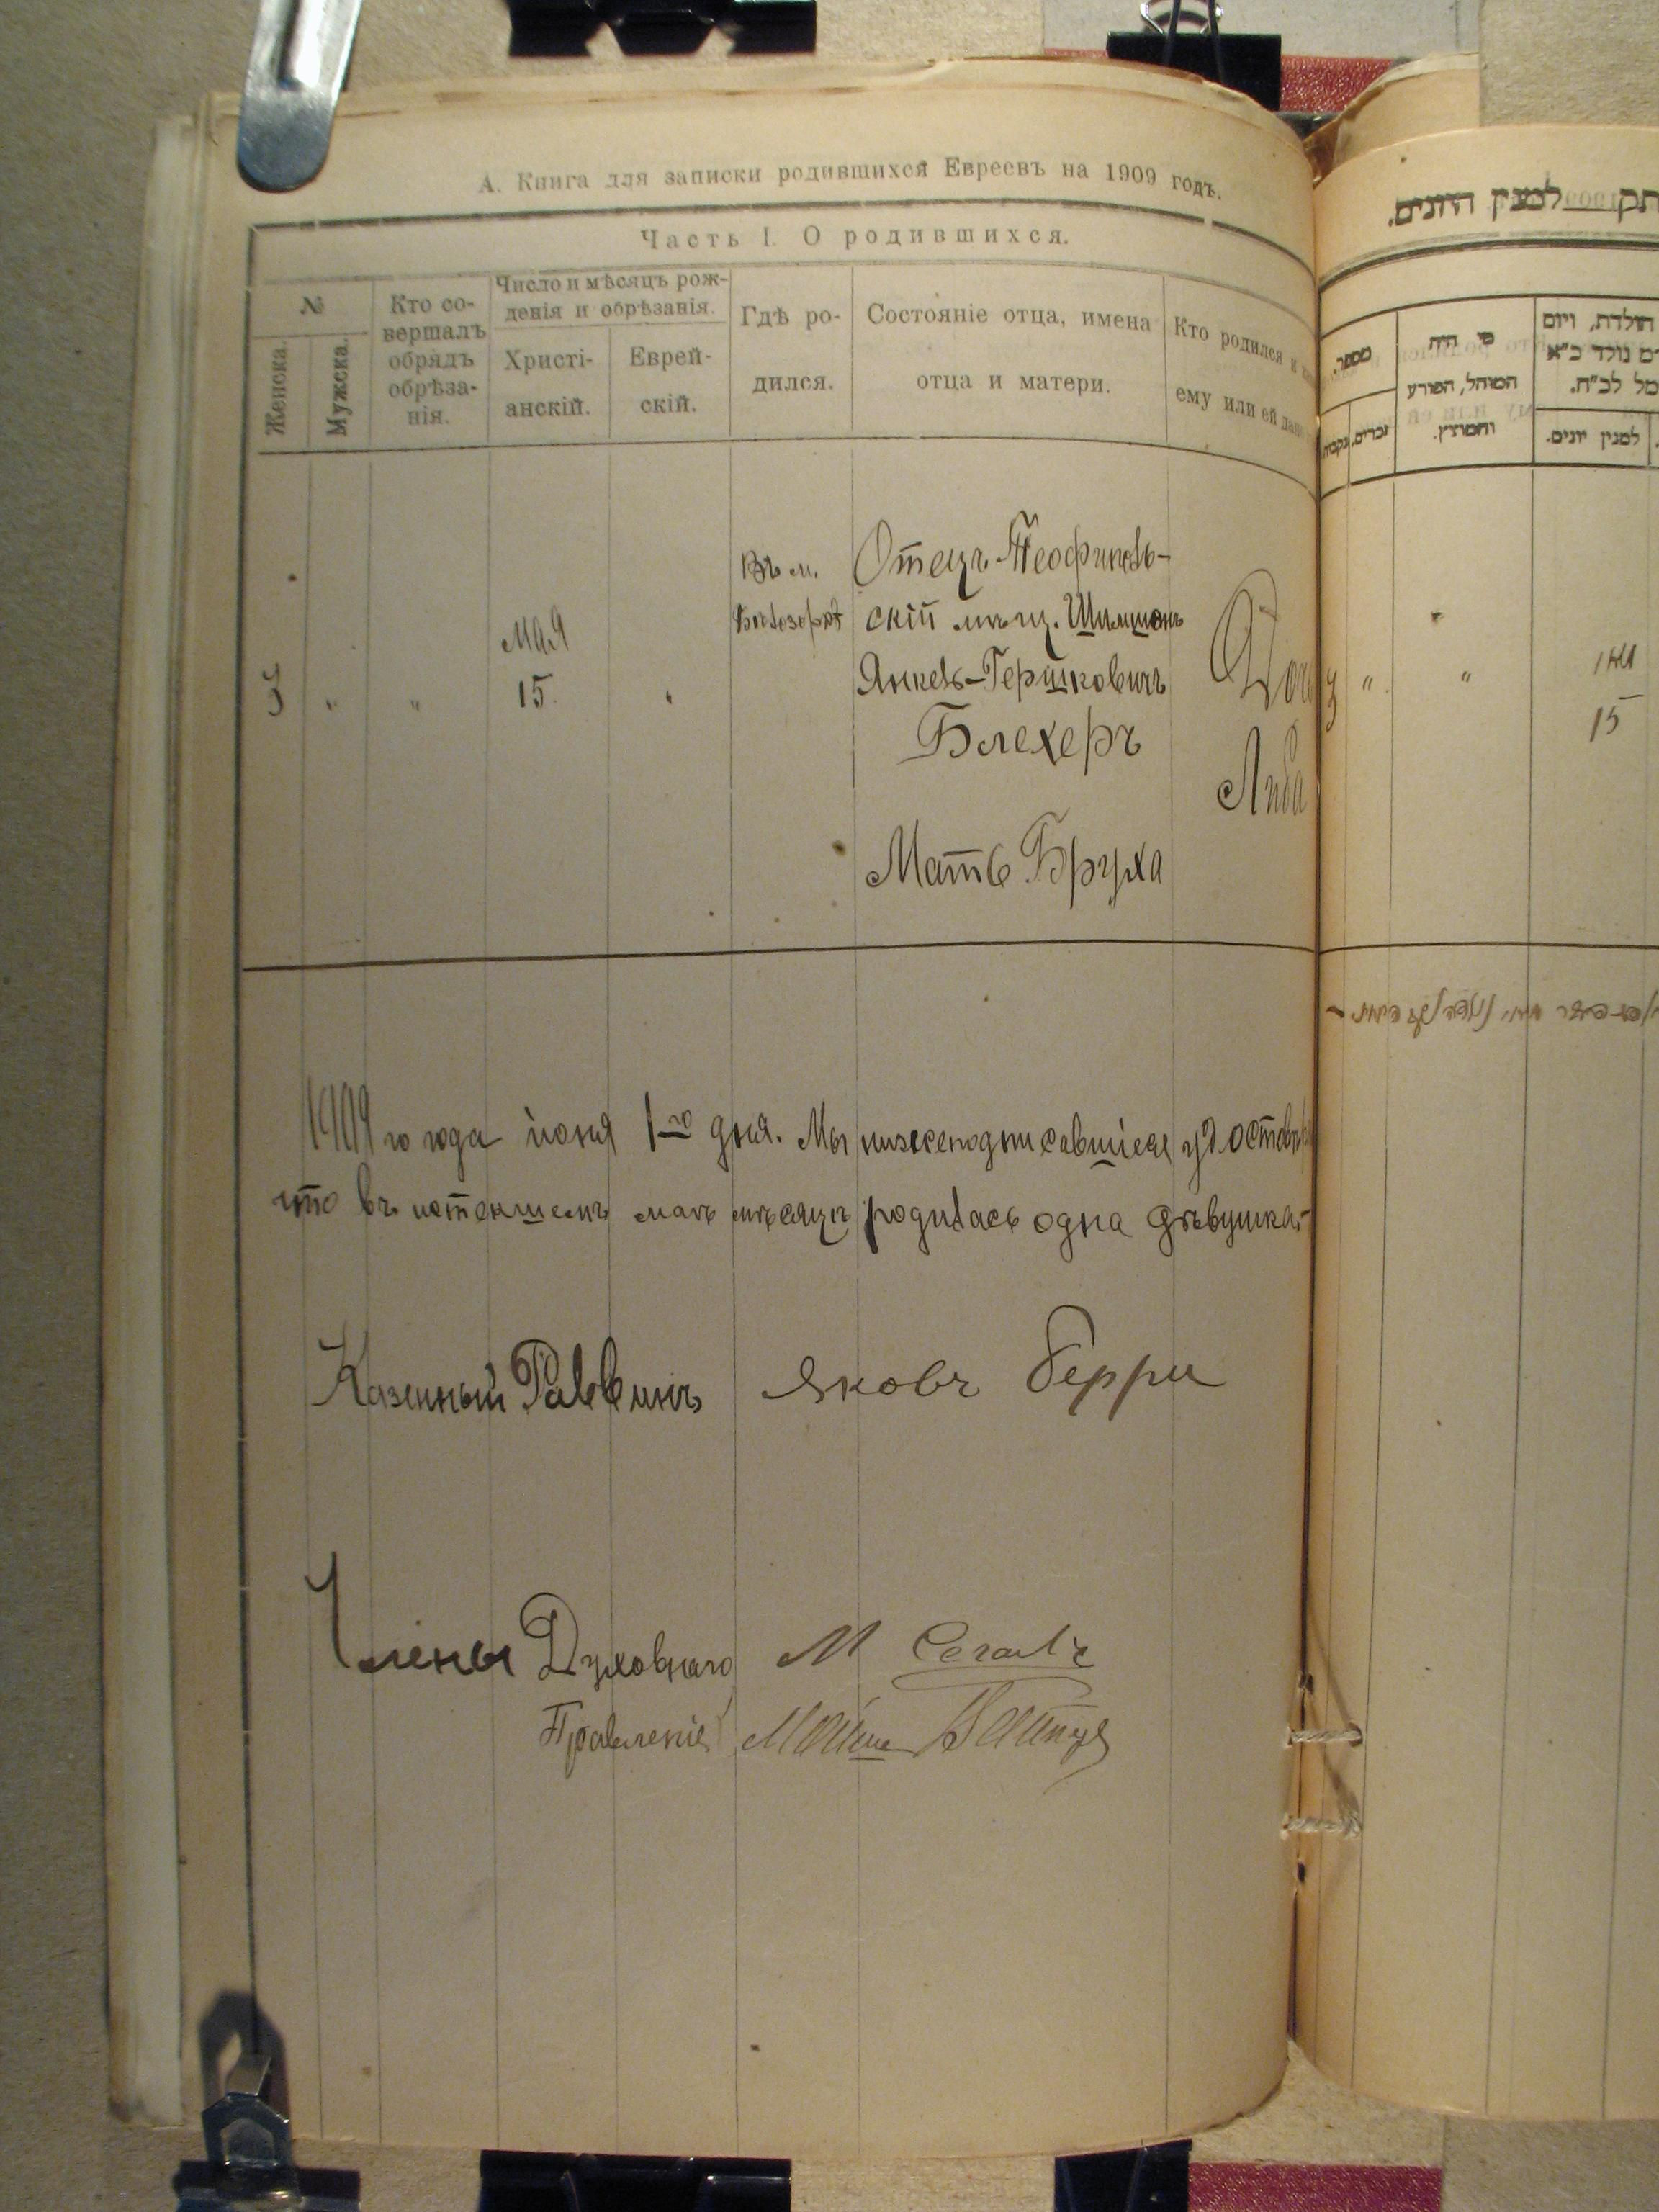 А. Книга для записки родившихся Евреевъ на 1909 годъ.
Часть I. О родившихся.
№
Женска.
Мужска.
Кто со-
вершалъ
обрядъ
обрѣза-
нія.
Число и мѣсяцъ рож-
денія и обрѣзанія.
Христі-
анскій.
Еврей-
скій.
Гдѣ ро-
дился.
Состояніе отца, имена
отца и матери.
Кто родился и
ему или ей
3
"
"
мая
15.
"
Въ м.
Отецъ
скій мѣщ. Шимшонъ
Янкель-Гершковичъ
Блехеръ
Мать Бруха
Либа
1909 го года іюня 1-го дня. Мы нижеподписавшіеся
что въ истекшемъ маѣ мѣсяцѣ родилась одна дѣвушка
Казенный Раввинъ Яковъ Берри
Члены Духовнаго М Сегалъ
Правленія
למנין היונים.
מספר.
זכרים.
מי היה
המוהל, הפורע
והמוצץ.
הולדת, ויום
נולד כ״א
מל לכ״ח.
למנין יונים.
3
"
"
15